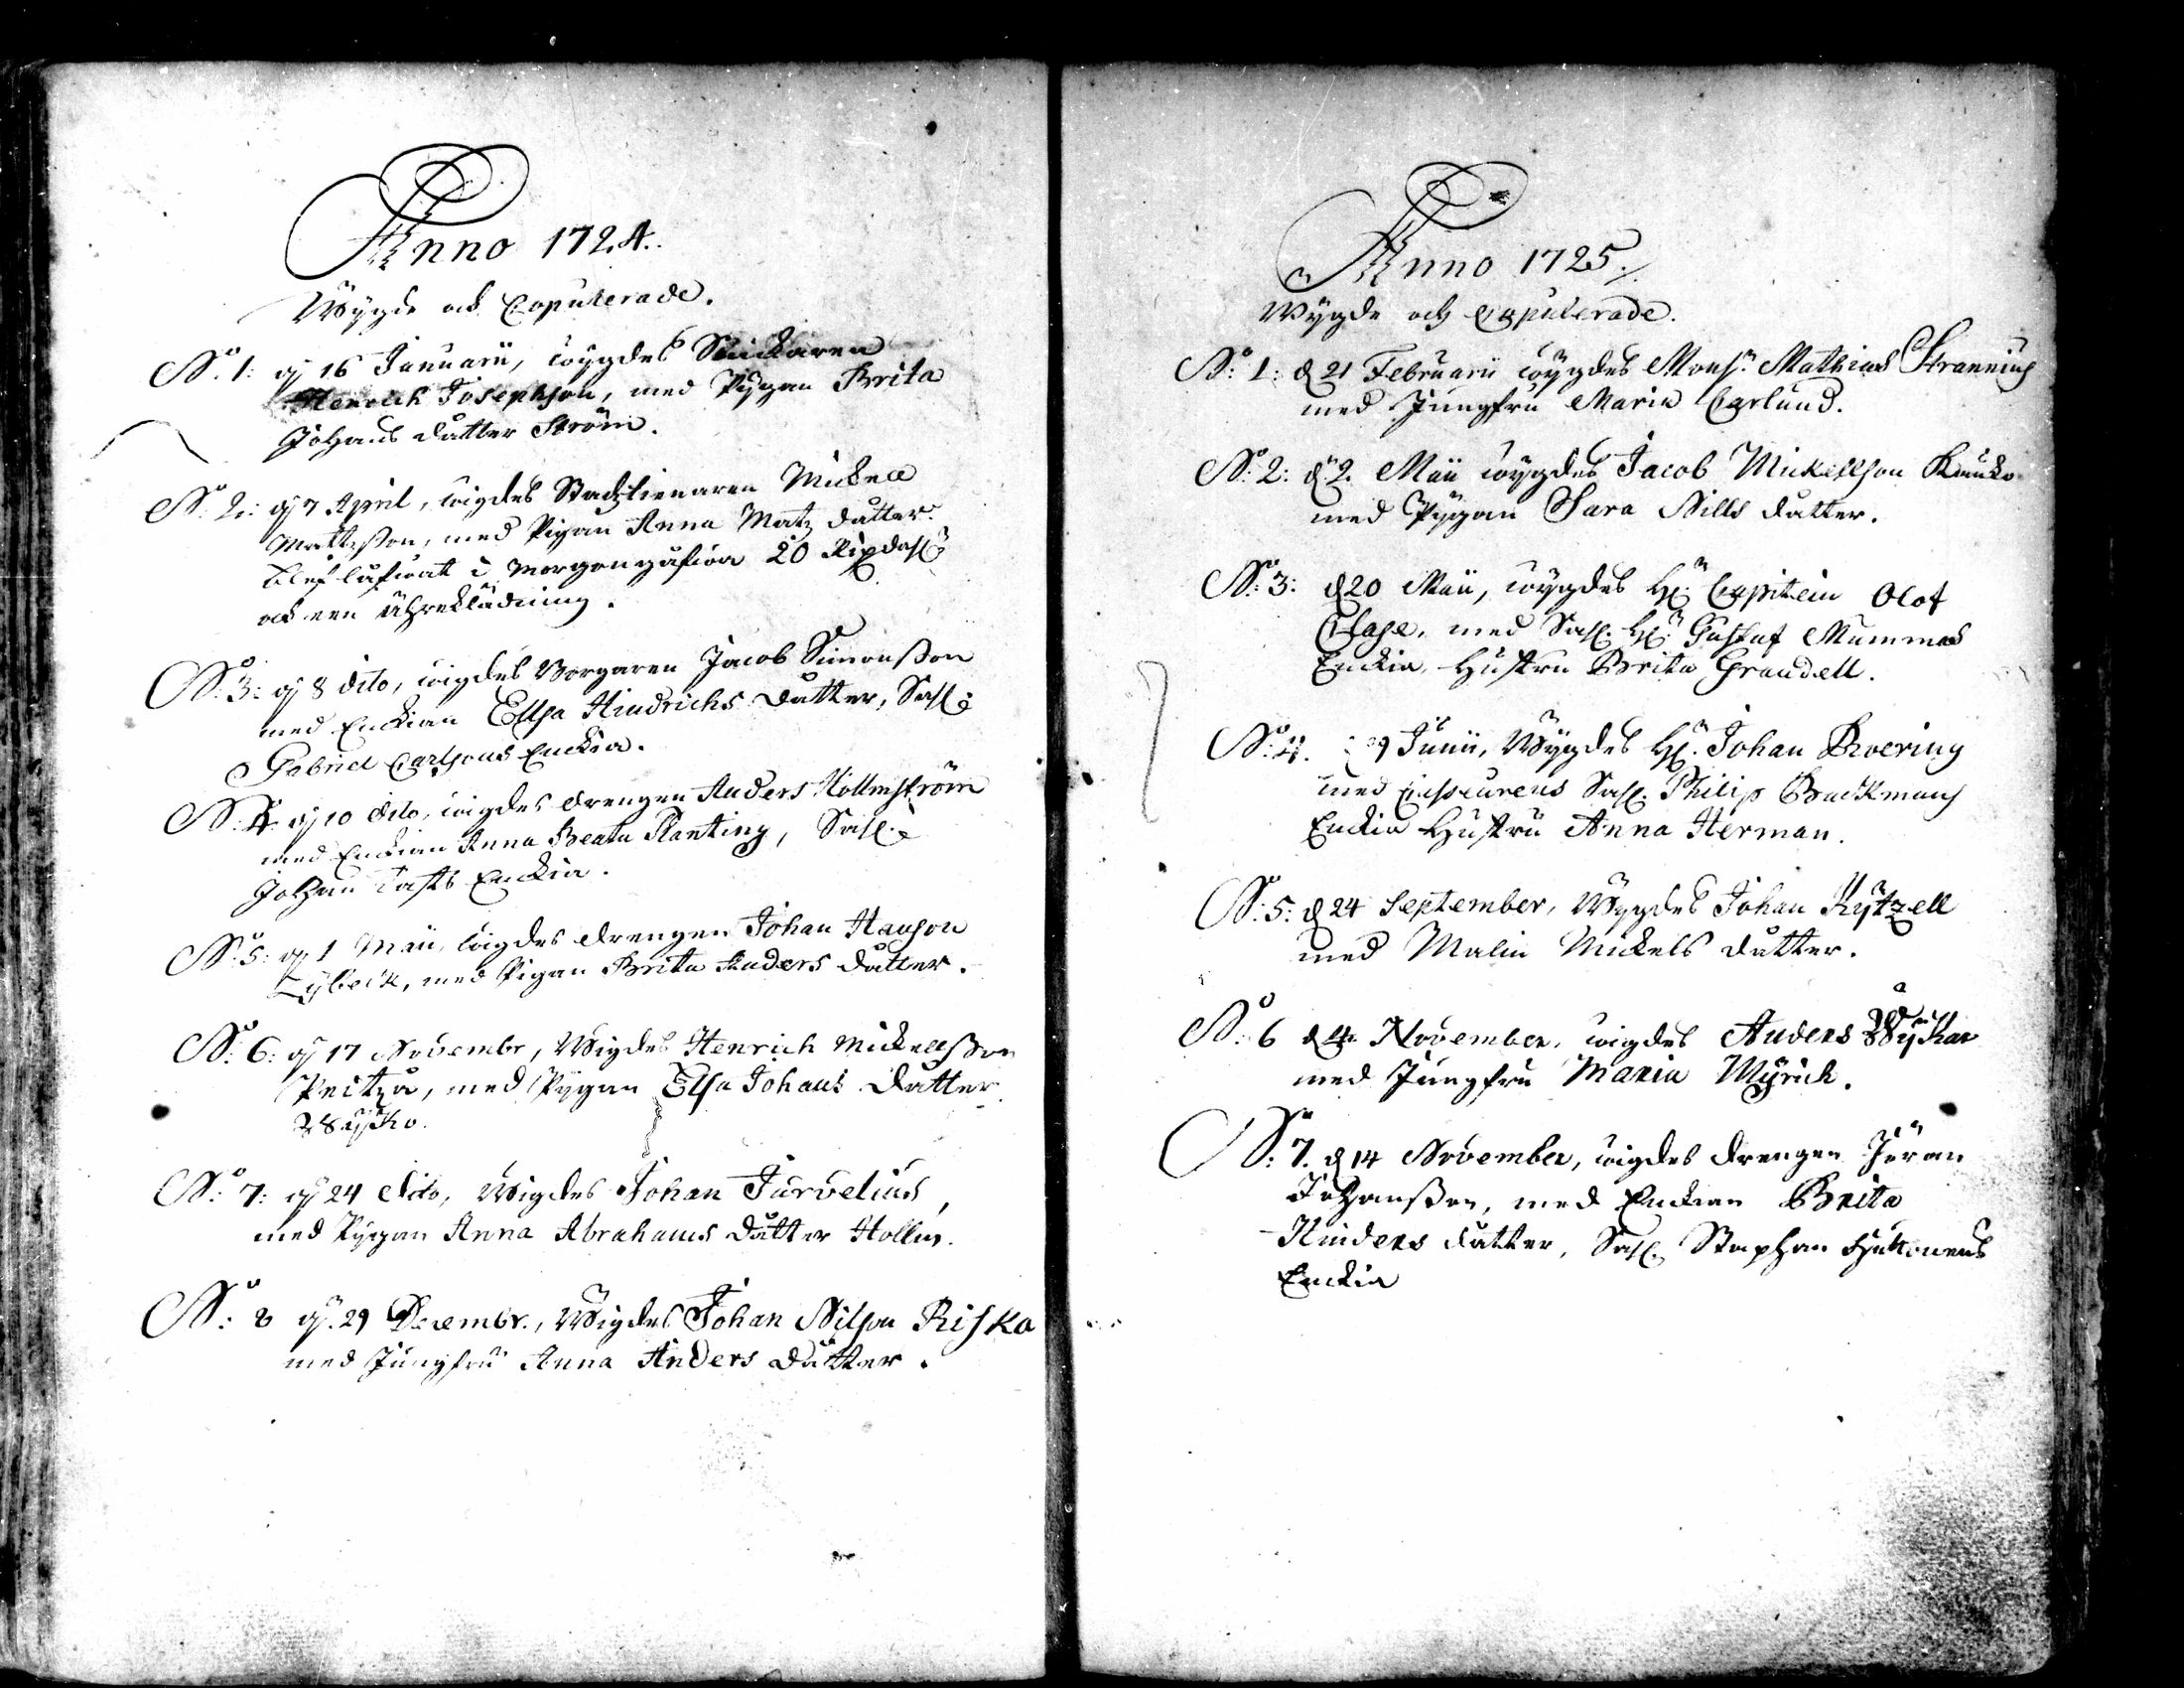 Anno 1724.
Wygde och Copulerade.
No. 1: dj 16 Januarii, wygdes Snickaren
Henrich Josephson, med Pygan Brita
Johans dåtter Ström.
No. 2: dj 7 April, wigdes Stadztienaren Mickell
Mattzsson, med Pigan Anna Matz dåtter.
blef låfwat i Morgongåfwa 20 Rixdahl:r
och een Ähreklädning.
No: 3: dj 8 dito, wigdes Borgaren Jacob Simonsson
med Enckian Elssa Hindrichs dåtter, Sahl:
Gabriel Carlssons Enckia.
No: 4: dj 10 dito, wigdes drengen Anders Hollmström
med Enckian Anna Beata Planting, Sahl:
Johan Tasts Enckia.
No: 5: dj 1 Maii, wigdes drengen Johan Hanson
Lybeck, med Pigan Brita Anders dåtter.
No: 6: dj 17 Novembr, Wigdes Henrich Mickellsson
Peitza, med Pygan Elsa Johans dåtter
No: 7: dj 24 dito, Wigdes Johan Jurvelius,
med Pygan Anna Abrahams dåtter Hollm.
No: 8 dj. 29 Decembr., Wigdes Johan Nilson Riska
med Jungfru Anna Anders dåtter.
Anno 1725.
Wygde och Copulerade.
No: 1: d 21 Februarii wygdes Mons:r Mathias
med Jungfru Maria Carlund.
No: 2: d. 2. Maii wygdes Jacob Mickellson Kauko
med Pygan Sara Nills dåtter.
No: 3: d 20 Maii, wygdes H:r Capitein Olof
Clase, med Sahl. H:r Gustaf Mummas
Enckia, Hustru Brita Grandell.
No: 4. 29 Junii, Wygdes H:r Johan Broering
med Sahl. Philip Backmans
Enckia Hustru Anna Herman.
No: 5: d 24 September, Wygdes Johan Kytzell
med Malin Mickels dåtter.
No: 6 d 4 November, wigdes Anders
med Jungfru Maria Wyrick.
No: 7. d 14 November, wigdes drengen Jöran
Johansson, med Enckian Brita
Hinders dåtter, Sahl. Staphan
Enckia